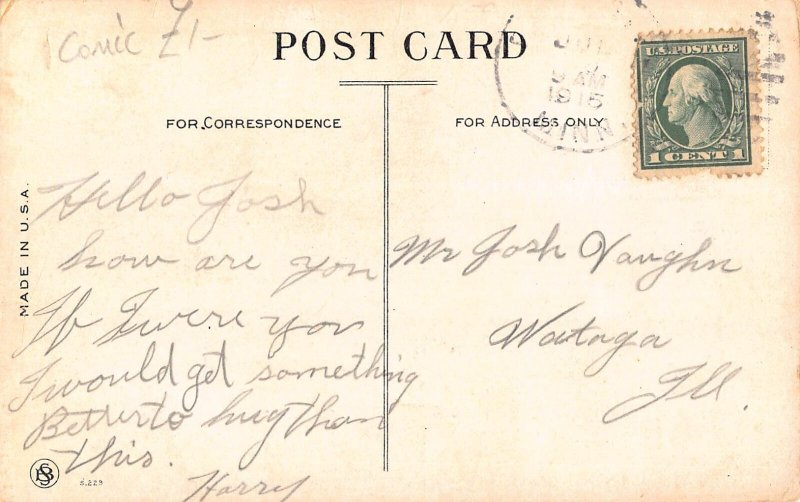 Comic £1-
POST CARD
FOR CORRESPONDENCE
FOR ADDRESS ONLY
MADE IN U.S.A.
JUL
9 AM
1915
MINN
U.S. POSTAGE
1 CENT 1
Hello Josh
how are you
If I were you
I would get something
Better to hug than
this.
Harry
Mr Josh Vaughn
Wataga
Ill.
S.223